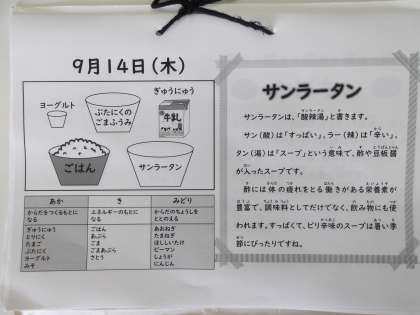 9月14日(木)
ヨーグルト
ぶたにくの
ごまふうみ
ぎゅうにゅう
牛乳
ごはん
サンラータン
あか き みどり
からだをつくるもとに
なる
エネルギーのもとに
なる
からだのちょうしを
ととのえる
ぎゅうにゅう ごはん あおねぎ
とりにく あぶら たまねぎ
たまご ごま ほししいたけ
ぶたにく ごまあぶら ピーマン
ヨーグルト さとう しょうが
みそ にんじん
サンラータン
サンラータンは、「酸辣湯」と書きます。
サン(酸)は「すっぱい」、ラー(辣)は「辛い」、
タン(湯)は『スープ』という意味で、酢や豆板醤
が入ったスープです。
酢には体の疲れをとる働きがある栄養素が
豊富で、調味料としてだけでなく、飲み物にも使
われます。すっぱくて、ピリ辛味のスープは暑い季
節にぴったりですね。